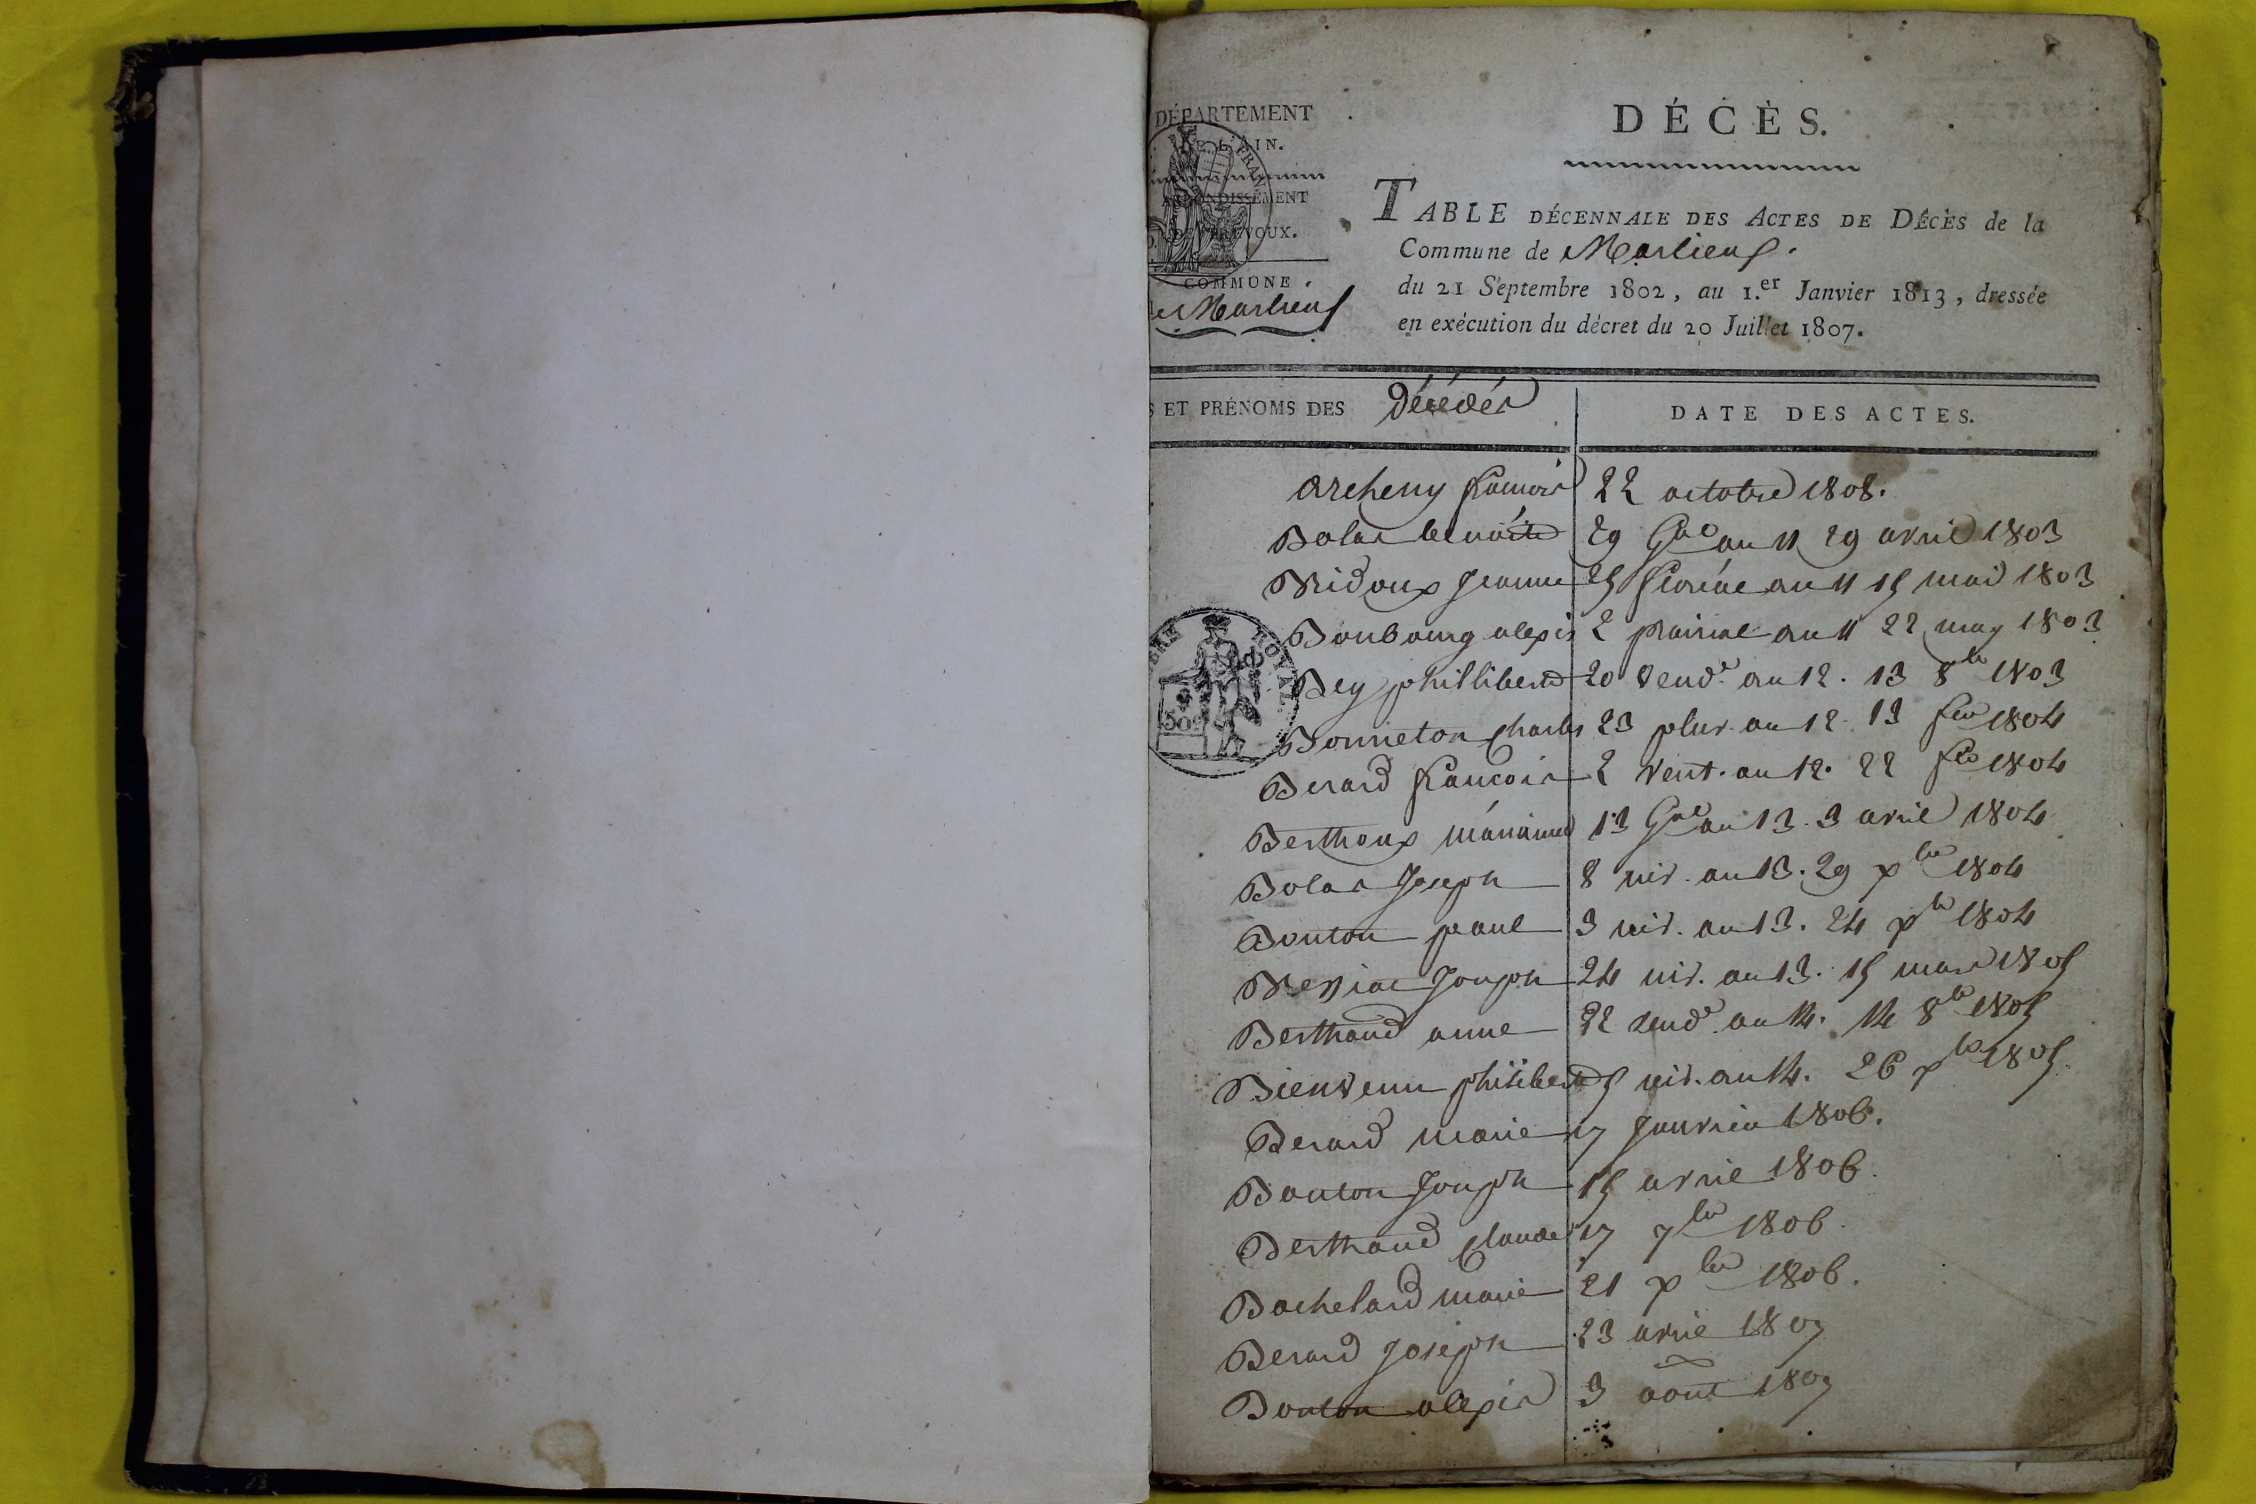 DÉPARTEMENT
DE L'AIN.
ARRONDISSEMENT
DE TREVOUX.
COMMUNE
de Marlieux
DÉCÈS.
TABLE DÉCENNALE DES ACTES DE DÉCÈS de la
Commune de Marlieux.
du 21 Septembre 1802, au 1.er Janvier 1813, dressée
en exécution du décret du 20 Juillet 1807.
S ET PRÉNOMS DES Décédés
DATE DES ACTES.
Archeny francois 22 octobre 1808.
Bolas benoite 29 Gal an 11 29 avril 1803
Bridoux Jeanne 25 floréal an 11 15 mai 1803
Bonbourg alexis 2 prairial an 11 22 may 1803
Bey phillibert 20 vend.e an 12. 13 8bre 1803
Bonneton charles 23 pluv. an 12. 13 fev 1804
Berard francois 2 vent. an 12. 22 fev 1804
Berthoux marianne 13 Gal an 13. 3 avril 1804
Bolas Joseph 8 niv. an 13. 29 xbre 1804
Bouton paul 3 niv. an 13. 24 xbre 1804
Joseph 24 niv. an 13. 15 mars 1805
Berthaud anne 22 vend.e an 14. 14 8bre 1805
Bienvenu philibert 5 niv. an 14. 26 xbre 1805
Berard marie 17 Janvier 1806.
Bouton Joseph 15 avril 1806.
Berthaud claude 17 7bre 1806.
Bachelard marie 21 xbre 1806.
Berard Joseph 23 avril 1807
Bouton alexis 3 aout 1807